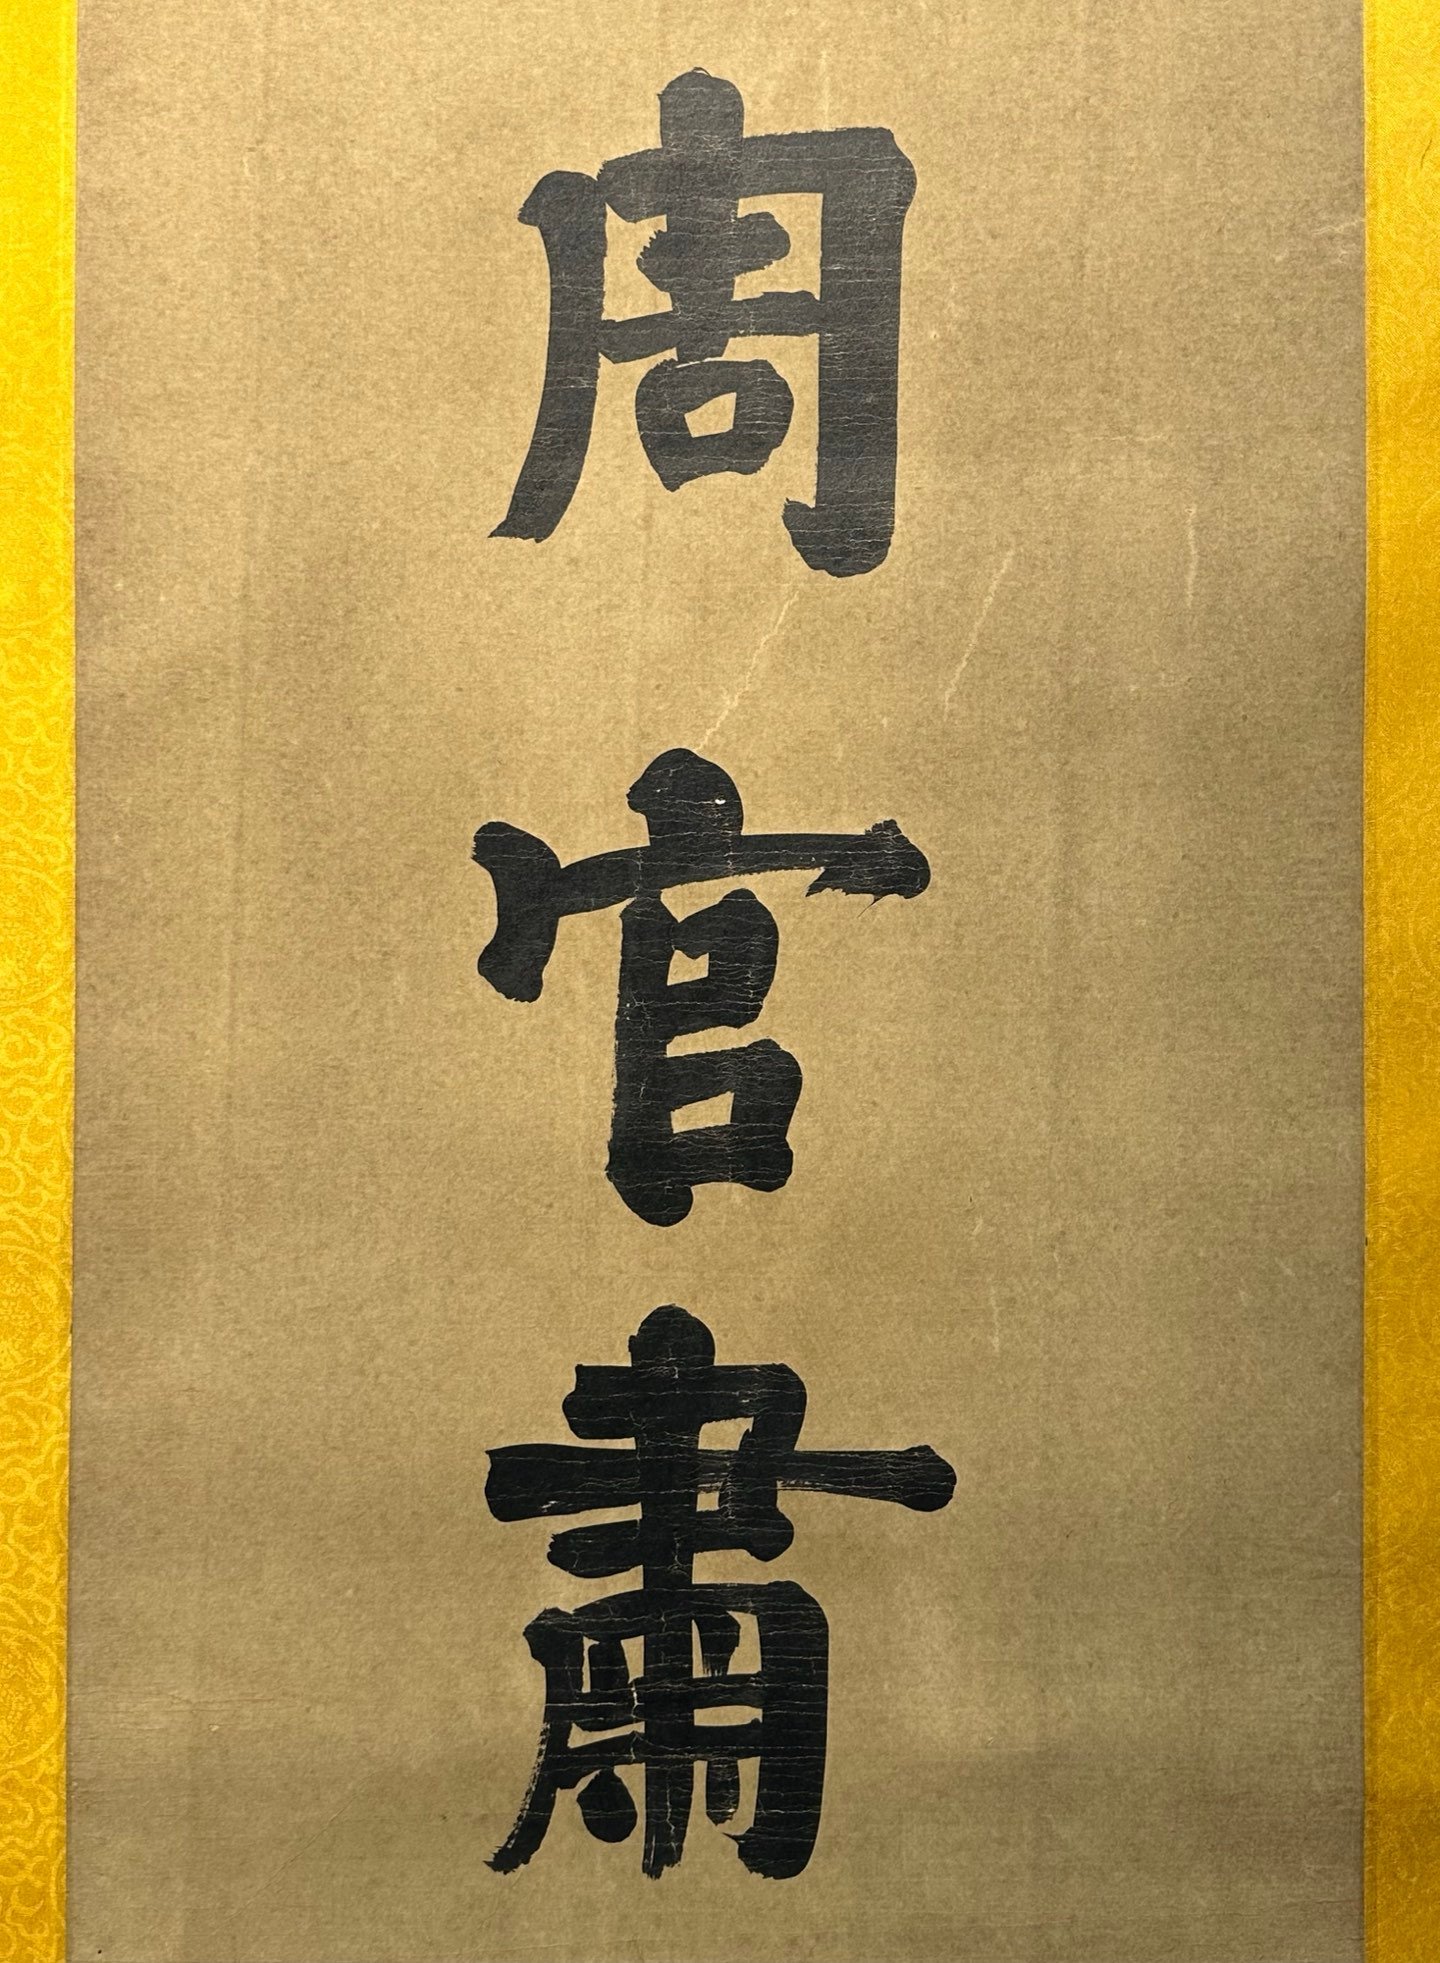 周官肅